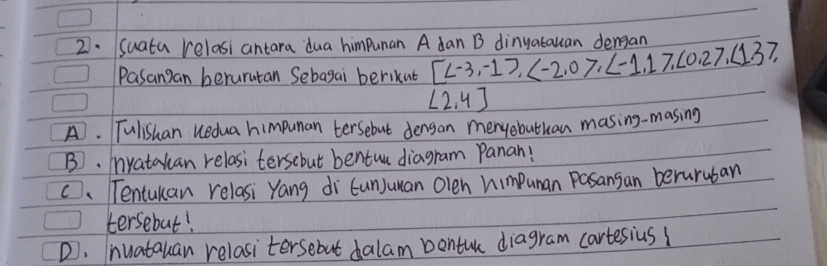 2. Suatu relasi antara dua himpunan A dan B dinyatakan dengan
Pasangan berurutan Sebagai berikut [<-3,-1>,<-2,0>,<-1,1>,<0,2>,<1,3>,
<2,4]
A. Tuliskan kedua himpunan tersebut dengan menyebutkan masing-masing
B. nyatakan relasi tersebut bentuk diagram Panah!
C. Tentukan relasi Yang di tunjukan Oleh himpunan Pasangan berurutan
tersebut!
D. nyatakan relasi tersebut dalam bentuk diagram cartesius!